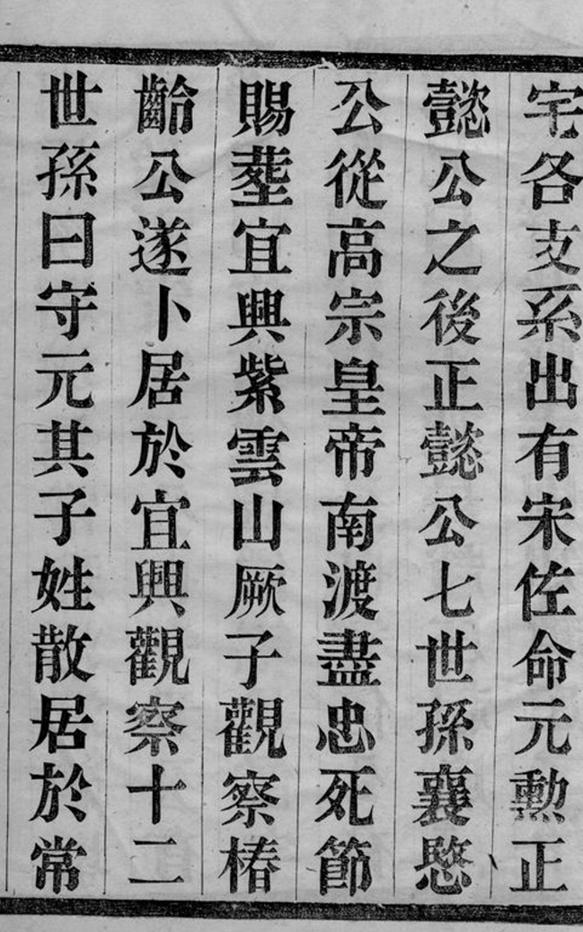 宅各支系出有宋佐命元勲正
懿公之後正懿公七世孫襄愍
公從高宗皇帝南渡盡忠死節
賜塟宜興紫雲山厥子觀察椿
齡公遂卜居於宜興觀察十二
世孫曰守元其子姓散居於常